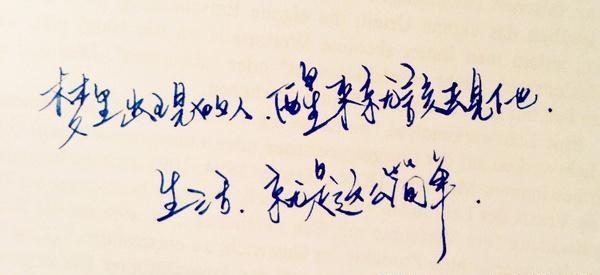 梦里出现的人.醒来就该去见他.
生活.就是这么简单.